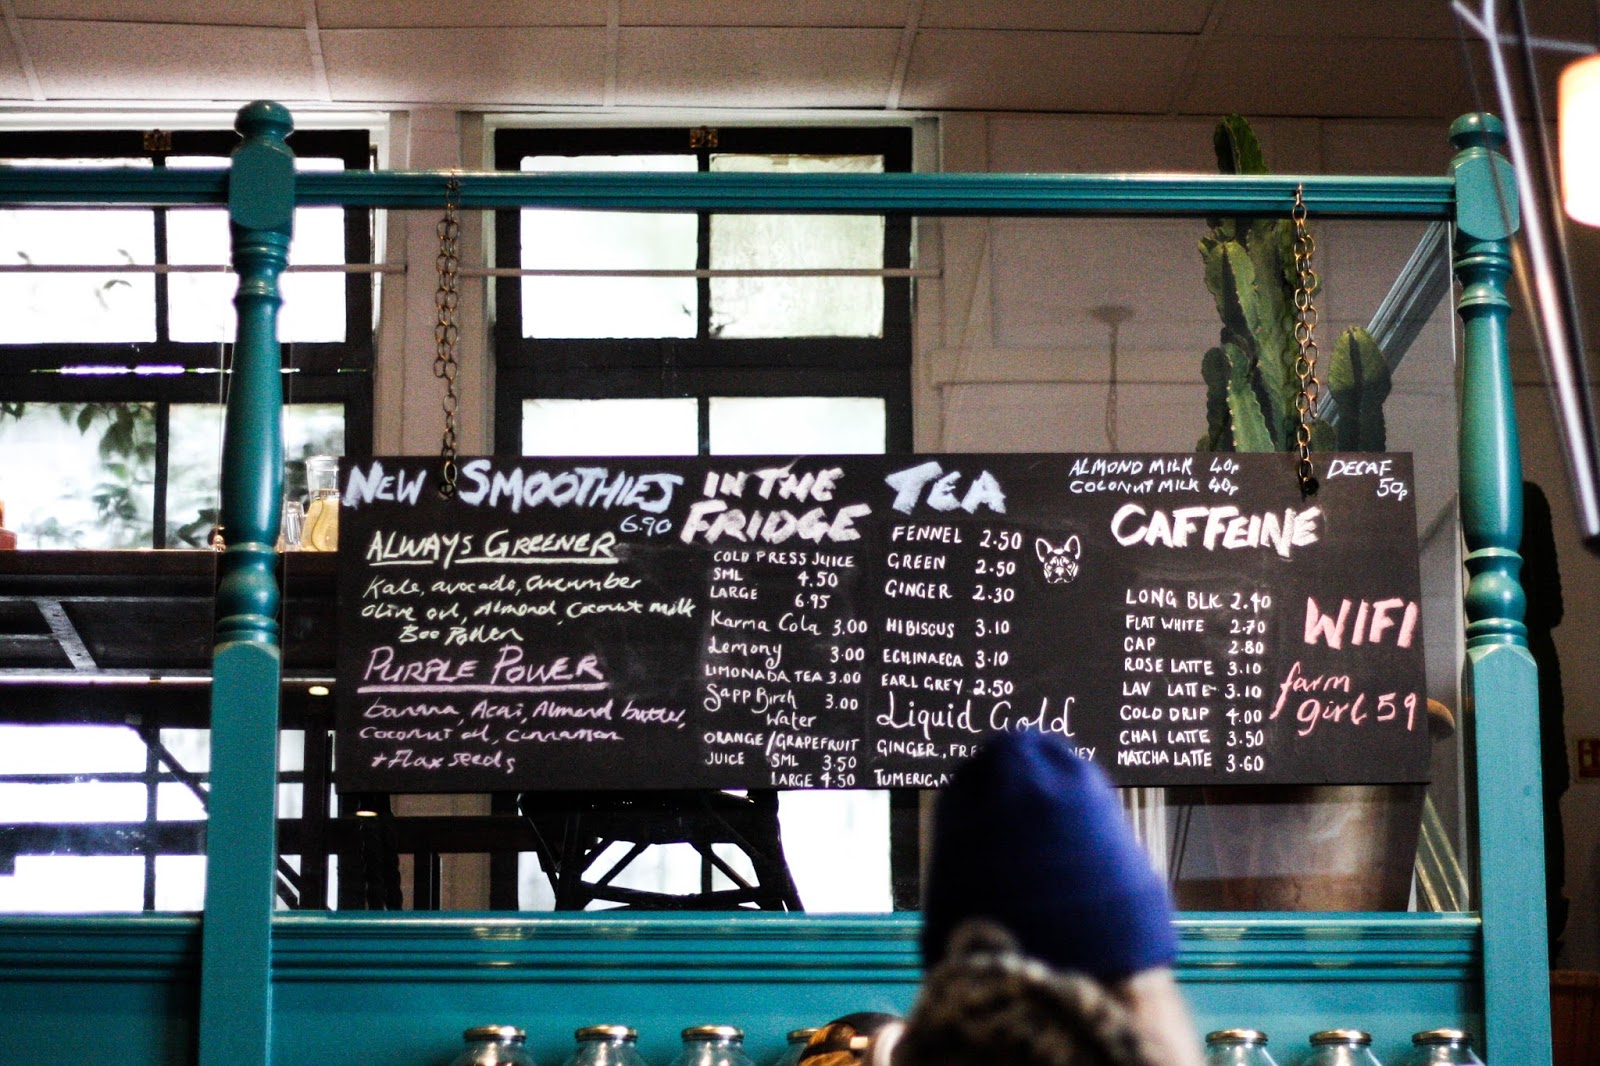 NEW SMOOTHIES
6.90
ALWAYS GREENER
Kale, avocado, cucumber
Olive oil, Almond, Coconut milk
Bee Pollen
PURPLE POWER
banana, Acai, Almond butter,
Coconut oil, cinnamon
+ Flax seeds
IN THE
FRIDGE
COLD PRESS JUICE
SML 4.50
LARGE 6.95
Karma Cola 3.00
Lemony 3.00
LIMONADA TEA 3.00
Sapp Birch 3.00
Water
ORANGE/GRAPEFRUIT
JUICE SML 3.50
LARGE 4.50
TEA
FENNEL 2.50
GREEN 2.50
GINGER 2.30
HIBISCUS 3.10
ECHINAECA 3.10
EARL GREY 2.50
Liquid Gold
GINGER,
TUMERIC,
ALMOND MILK 40p
COCONUT MILK 40p
DECAF
50p
CAFFEINE
LONG BLK 2.40
FLAT WHITE 2.70
CAP 2.80
ROSE LATTE 3.10
LAV LATTE 3.10
COLD DRIP 4.00
CHAI LATTE 3.50
MATCHA LATTE 3.60
WIFI
farm
girl 59